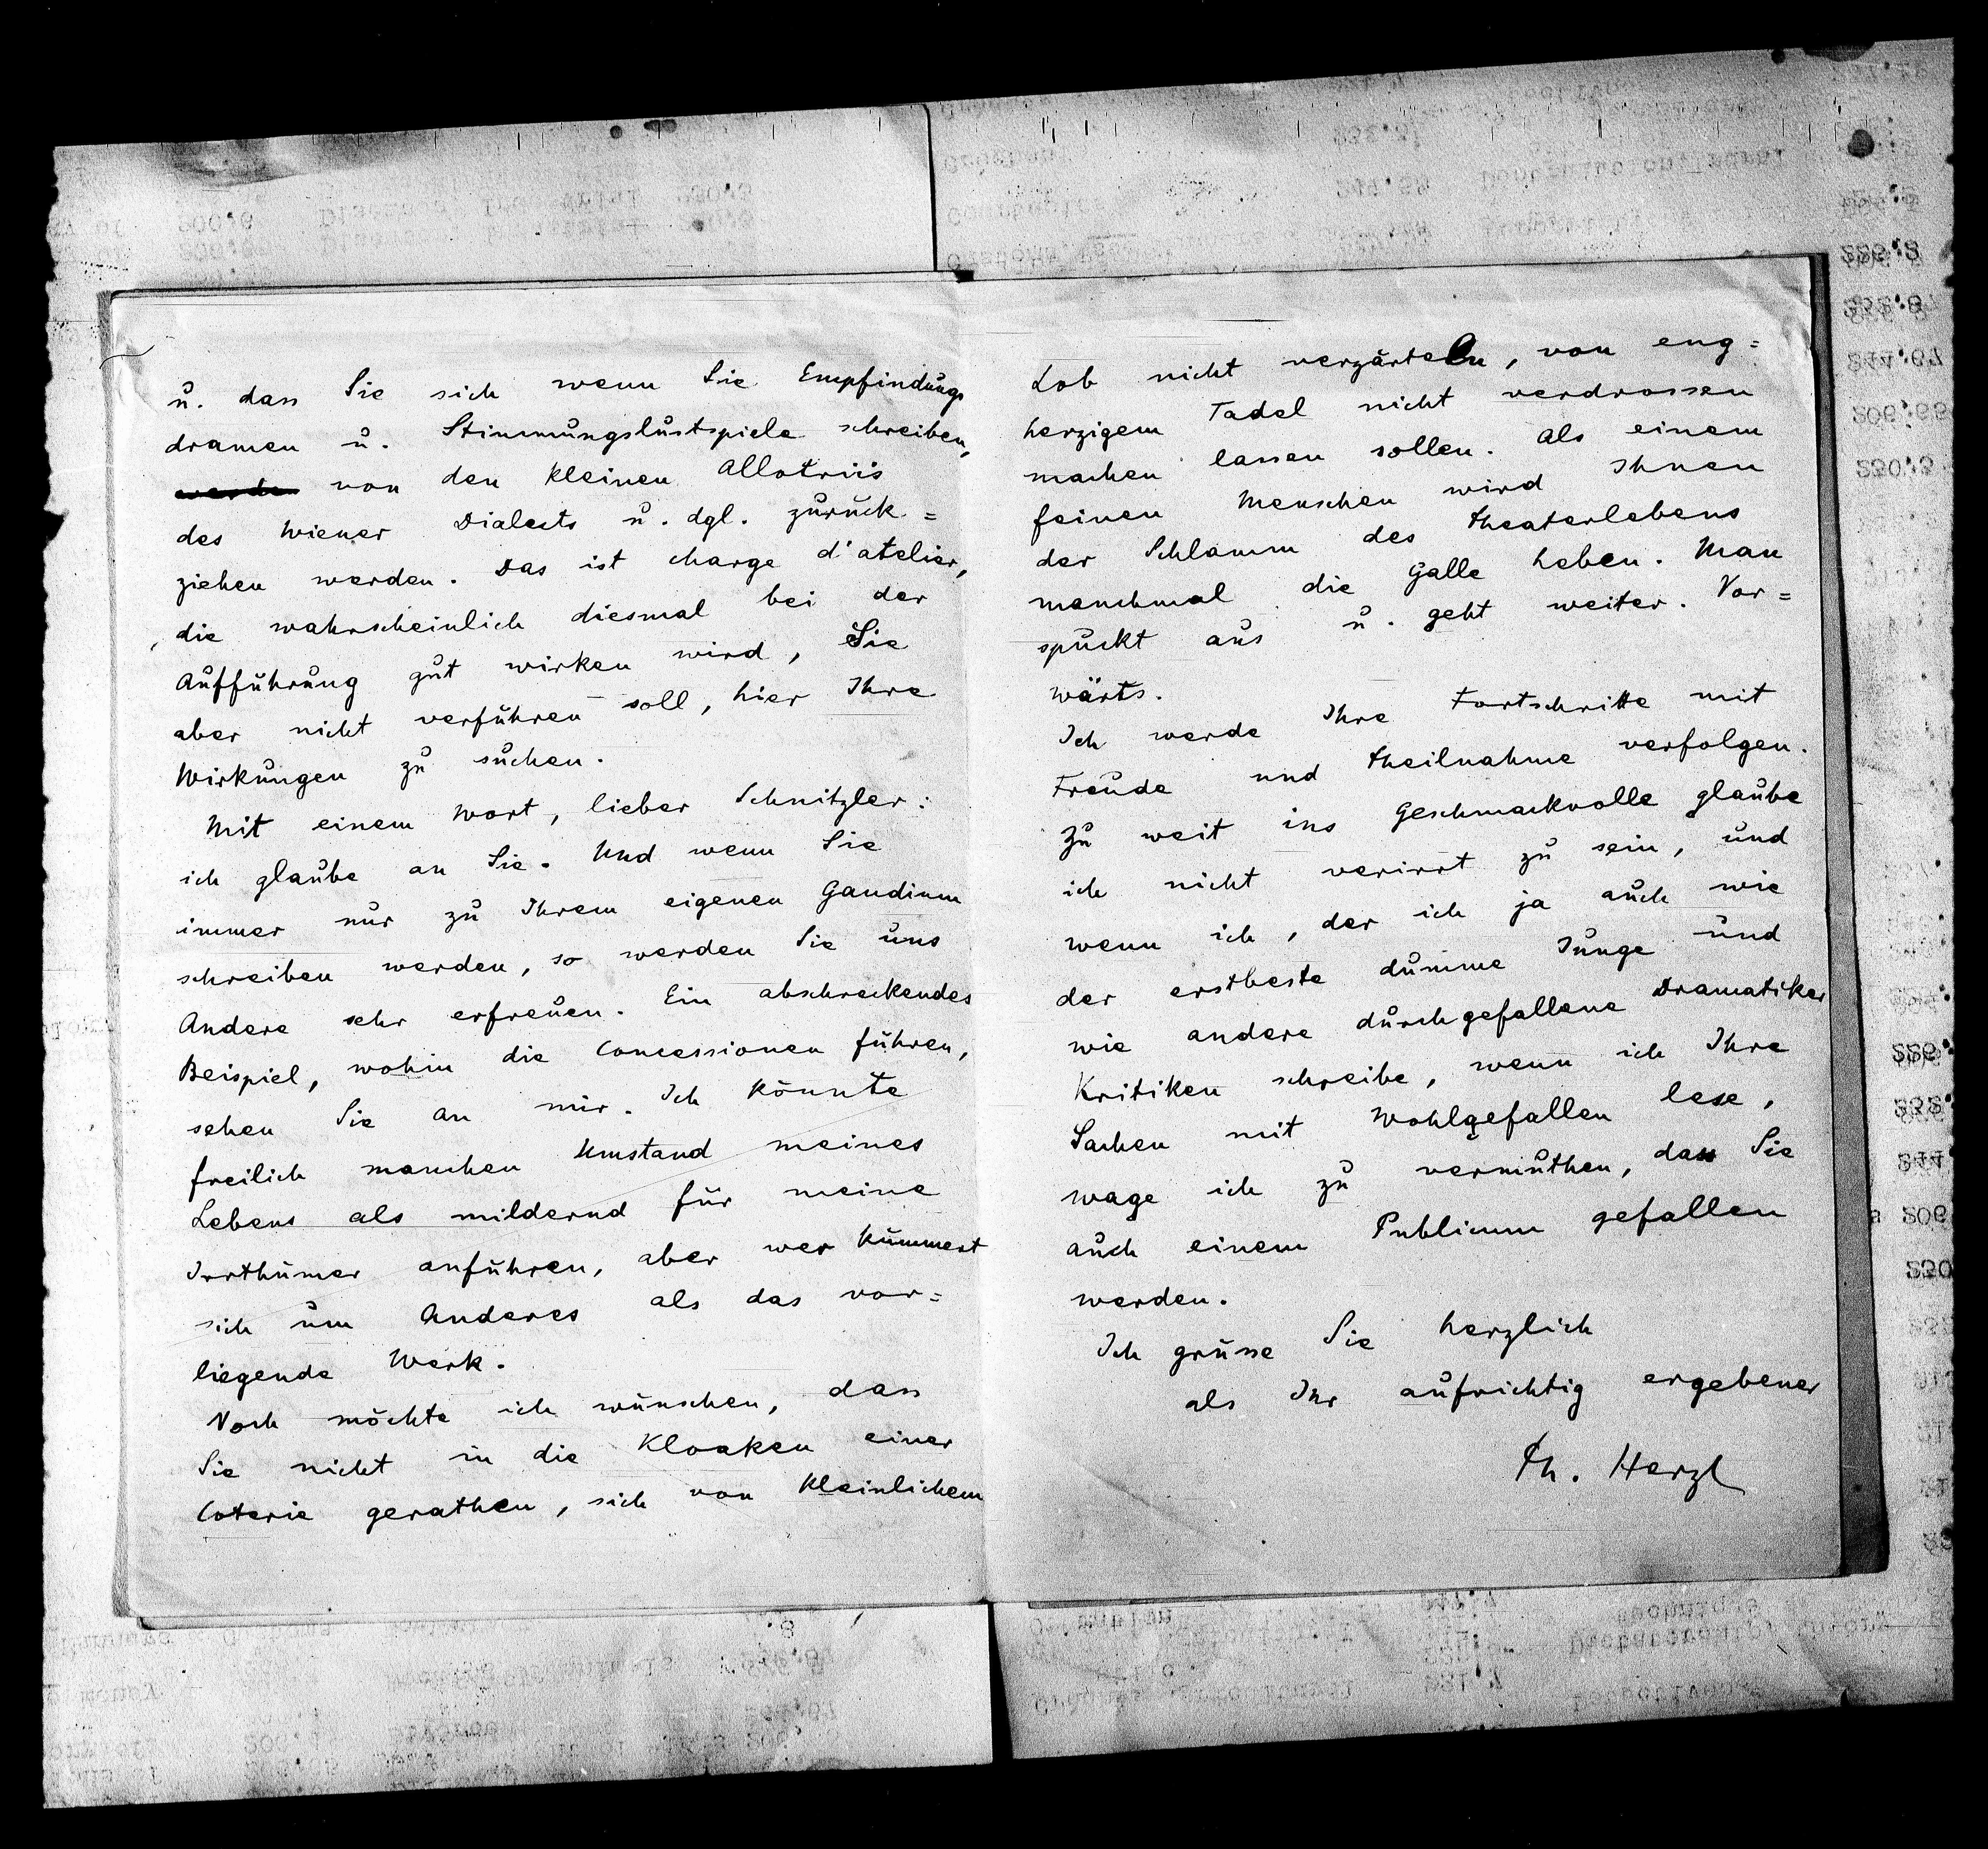 u. dass Sie sich wenn Sie Empfindungs
dramen u. Stimmungslustspiele schreiben,
von den kleinen Allotriis
des Wiener Dialects u. dgl. zurück=
ziehen werden. Das ist charge d'atelier,
die wahrscheinlich diesmal bei der
Aufführung gut wirken wird, Sie
aber nicht verführen soll, hier Ihre
Wirkungen zu suchen.
Mit einem Wort, lieber Schnitzler:
ich glaube an Sie. Und wenn Sie
immer nur zu Ihrem eigenen Gaudium
schreiben werden, so werden Sie uns
Andere sehr erfreuen. Ein abschreckendes
Beispiel, wohin die Concessionen führen,
sehen Sie an mir. Ich könnte
freilich manchen Umstand meines
Lebens als mildernd für meine
Irrthümer anführen, aber wer kümmert
sich um Anderes als das vor=
liegende Werk.
Noch möchte ich wünschen, dass
Sie nicht in die Kloaken einer
Coterie gerathen, sich von kleinlichem
Lob nicht verzärteln, von eng=
herzigem Tadel nicht verdrossen
machen lassen sollen. Als einem
feinen Menschen wird Ihnen
der Schlamm des Theaterlebens
manchmal die Galle heben. Man
spuckt aus u. geht weiter. Vor=
wärts.
Ich werde Ihre Fortschritte mit
Freude und Theilnahme verfolgen.
Zu weit ins Geschmackvolle glaube
ich nicht verirrt zu sein, und
wenn ich, der ich ja auch wie
der erstbeste dumme Junge und
wie andere durchgefallene Dramatiker
Kritiken schreibe, wenn ich Ihre
Sachen mit Wohlgefallen lese,
wage ich zu vermuthen, dass Sie
auch einem Publicum gefallen
werden.
Ich grüsse Sie herzlich
als Ihr aufrichtig ergebener
Th. Herzl